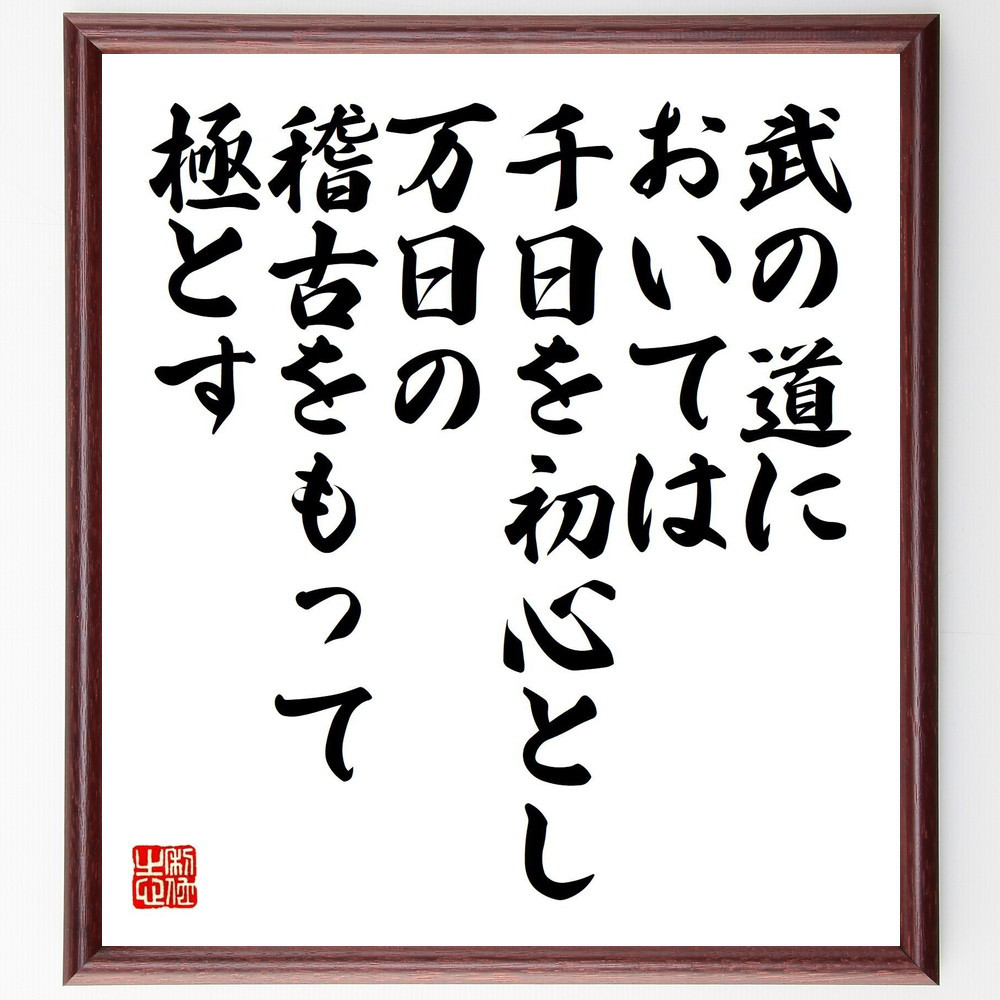 武の道に
おいては
千日を初心とし
万日の
稽古をもって
極とす